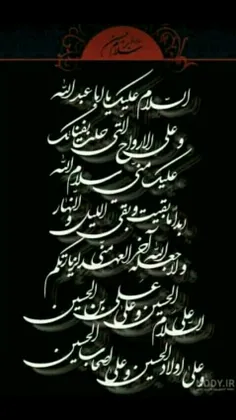 سلام بر حسین
السلام علیک یا ابا عبدالله
و علی الارواح التی حلت بفنائک
علیک منی سلام الله
ابدا ما بقیت و بقی اللیل و النهار
و لا جعله الله آخر العهد منی لزیارتکم
السلام علی الحسین و علی علی بن الحسین
و علی اولاد الحسین و علی اصحاب الحسین